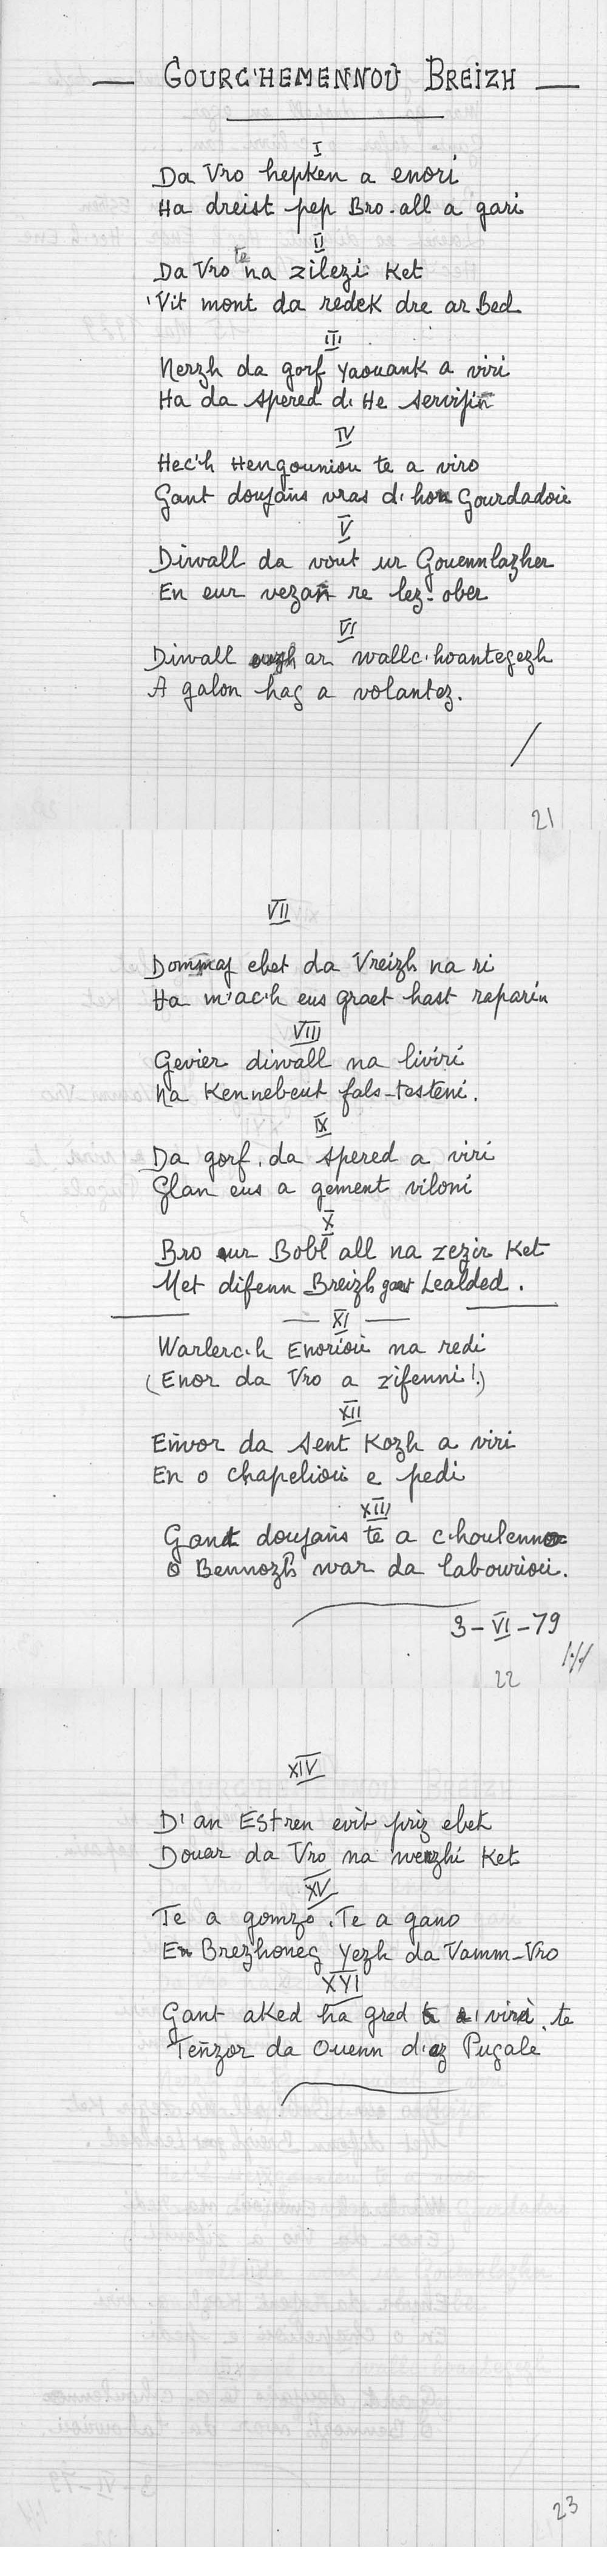 — GOURC'HEMENNOÙ BREIZH —
I
Da Vro hepken a enori
Ha dreist pep Bro-all a gari
II
Da Vro te na zilezi Ket
'Vit mont da redek dre ar Bed
III
Nerzh da gorf Yaouank a viri
Ha da spered d'He servijiñ
IV
Hec'h Hengouniou te a viro
Gant doujañs vras d'hon Gourdadoiù
V
Diwall da vout ur Gouennlazher
En eur vezañ re lez-ober
VI
Diwall ouzh ar wallc'hoantegezh
A galon hag a volantez.
/
21
VII
Dommaj ebet da Vreizh na ri
Ha m'ac'h eus graet hast repariñ
VIII
Gevier diwall na liviri
Na Kennebeut fals-testeni.
IX
Da gorf, da spered a viri
Glan eus a gement viloni
X
Bro eur Bobl all na zezir Ket
Met difenn Breizh gant Lealded.
— XI —
Warlerc'h Enorioù na redi
(Enor da Vro a zifenni!)
XII
Eñvor da Sent Kozh a viri
En o chapelioù e pedi
XIII
Gant doujañs te a c'houlenno
O Bennozh war da labourioù.
3-VI-79
22
XIV
D'an Estren evit priz ebet
Douar da Vro na werzhi Ket
XV
Te a gomzo. Te a gano
En Brezhoneg Yezh da Vamm-Vro
XVI
Gant aked ha gred e viri te
Teñzor da Ouenn d'az Pugale
23